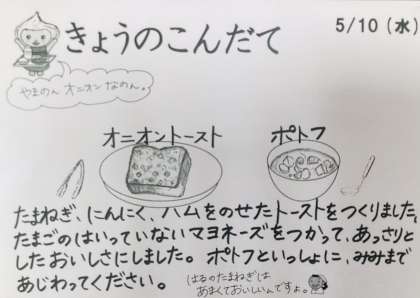 きょうのこんだて
5/10(水)
やまのん オニオン なのん。
オニオントースト
ポトフ
たまねぎ、にんにく、ハムをのせたトーストをつくりました。
たまごのはいっていないマヨネーズをつかって、あっさりと
したおいしさにしました。ポトフといっしょに、みみまで
あじわってください。
はるのたまねぎは
あまくておいしいんですよ。